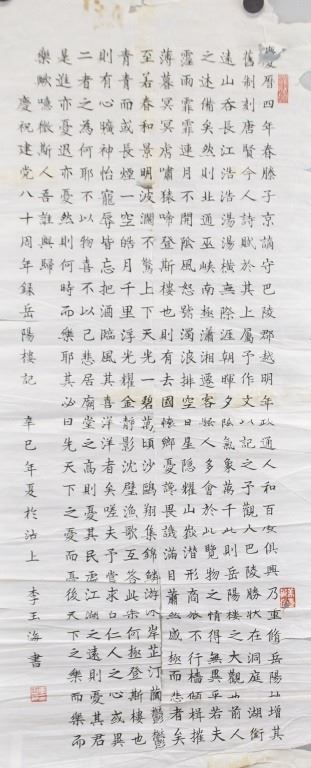 慶曆四年春滕子京謫守巴陵郡越明年政通人和百廢俱興乃重脩岳陽樓增其
舊制刻唐賢今人詩賦於其上屬予作文以記之予觀夫巴陵勝狀在洞庭一湖銜
遠山吞長江浩浩湯湯橫無際涯朝暉夕陰氣象萬千此則岳陽樓之大觀也前人
之述備矣然則北通巫峽南極瀟湘遷客騷人多會於此覽物之情得無異乎若夫
霪雨霏霏連月不開陰風怒號濁浪排空日星隱曜山岳潛形商旅不行檣傾楫摧
薄暮冥冥虎嘯猿啼登斯樓也則有去國懷鄉憂讒畏譏滿目蕭然感極而悲者矣
至若春和景明波瀾不驚上下天光一碧萬頃沙鷗翔集錦鱗游泳岸芷汀蘭鬱鬱
青青而或長煙一空皓月千里浮光耀金靜影沈璧漁歌互答此樂何極登斯樓也
則有心曠神怡寵辱皆忘把酒臨風其喜洋洋者矣嗟夫予嘗求古仁人之心或異
二者之為何哉不以物喜不以己悲居廟堂之高則憂其民處江湖之遠則憂其君
是進亦憂退亦憂然則何時而樂耶其必曰先天下之憂而憂後天下之樂而
樂歟噫微斯人吾誰與歸
慶祝建党八十周年錄岳陽樓記 辛巳年夏於沽上 李玉海書